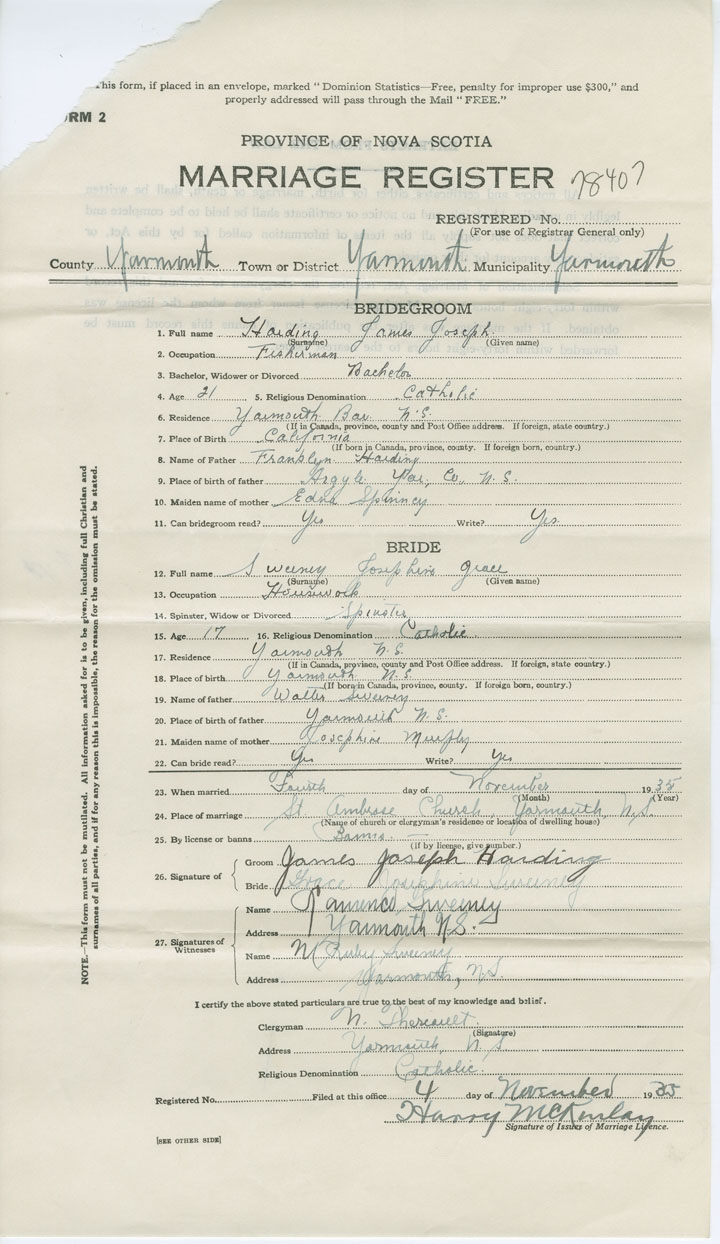 his form, if placed in an envelope, marked "Dominion Statistics—Free, penalty for improper use $300," and
properly addressed will pass through the Mail "FREE."
RM 2
PROVINCE OF NOVA SCOTIA
MARRIAGE REGISTER 78407
REGISTERED No.
(For use of Registrar General only)
County Yarmouth Town or District Yarmouth Municipality Yarmouth
BRIDEGROOM
1. Full name Harding James Joseph
(Surname) (Given name)
2. Occupation Fisherman
3. Bachelor, Widower or Divorced Bachelor
4. Age 21 5. Religious Denomination Catholic
6. Residence Yarmouth Bar N.S.
(If in Canada, province, county and Post Office address. If foreign, state country.)
7. Place of Birth California
(If born in Canada, province, county. If foreign born, country.)
8. Name of Father Franklyn Harding
9. Place of birth of father Argyle Yar. Co. N.S.
10. Maiden name of mother Edna Spinney
11. Can bridegroom read? Yes Write? Yes
BRIDE
12. Full name Sweeney Josephine Grace
(Surname) (Given name)
13. Occupation Housework
14. Spinster, Widow or Divorced Spinster
15. Age 17 16. Religious Denomination Catholic
17. Residence Yarmouth N.S.
(If in Canada, province, county and Post Office address. If foreign, state country.)
18. Place of birth Yarmouth N.S.
(If born in Canada, province, county. If foreign born, country.)
19. Name of father Walter Sweeney
20. Place of birth of father Yarmouth N.S.
21. Maiden name of mother Josephine Murphy
22. Can bride read? Yes Write? Yes
23. When married Fourth day of November 1935
(Month) (Year)
24. Place of marriage St Ambrose Church, Yarmouth, N.S.
(Name of church or clergyman's residence or location of dwelling house)
25. By license or banns Banns
(If by license, give number.)
26. Signature of Groom James Joseph Harding
Bride Grace Josephine Sweeney
27. Signatures of Witnesses Name Sweeney
Address Yarmouth N.S.
Name Ruby Sweeney
Address Yarmouth, N.S.
I certify the above stated particulars are true to the best of my knowledge and belief.
Clergyman N. Theriault
(Signature)
Address Yarmouth, N.S
Religious Denomination Catholic
Registered No. Filed at this office 4 day of November 1935
Harry McKinlay
Signature of Issuer of Marriage Licence.
[SEE OTHER SIDE]
NOTE.—This form must not be mutilated. All information asked for is to be given, including full Christian and
surnames of all parties, and if for any reason this is impossible, the reason for the omission must be stated.